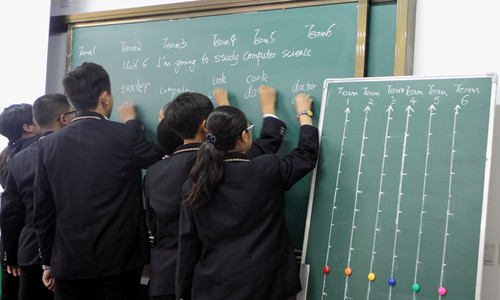 Team1 Team2 Team3 Team4 Team5 Team6
Unit 6 I'm going to study computer science
cook cook
teacher computer do doctor
Team Team Team Team Team Team
1 2 3 4 5 6